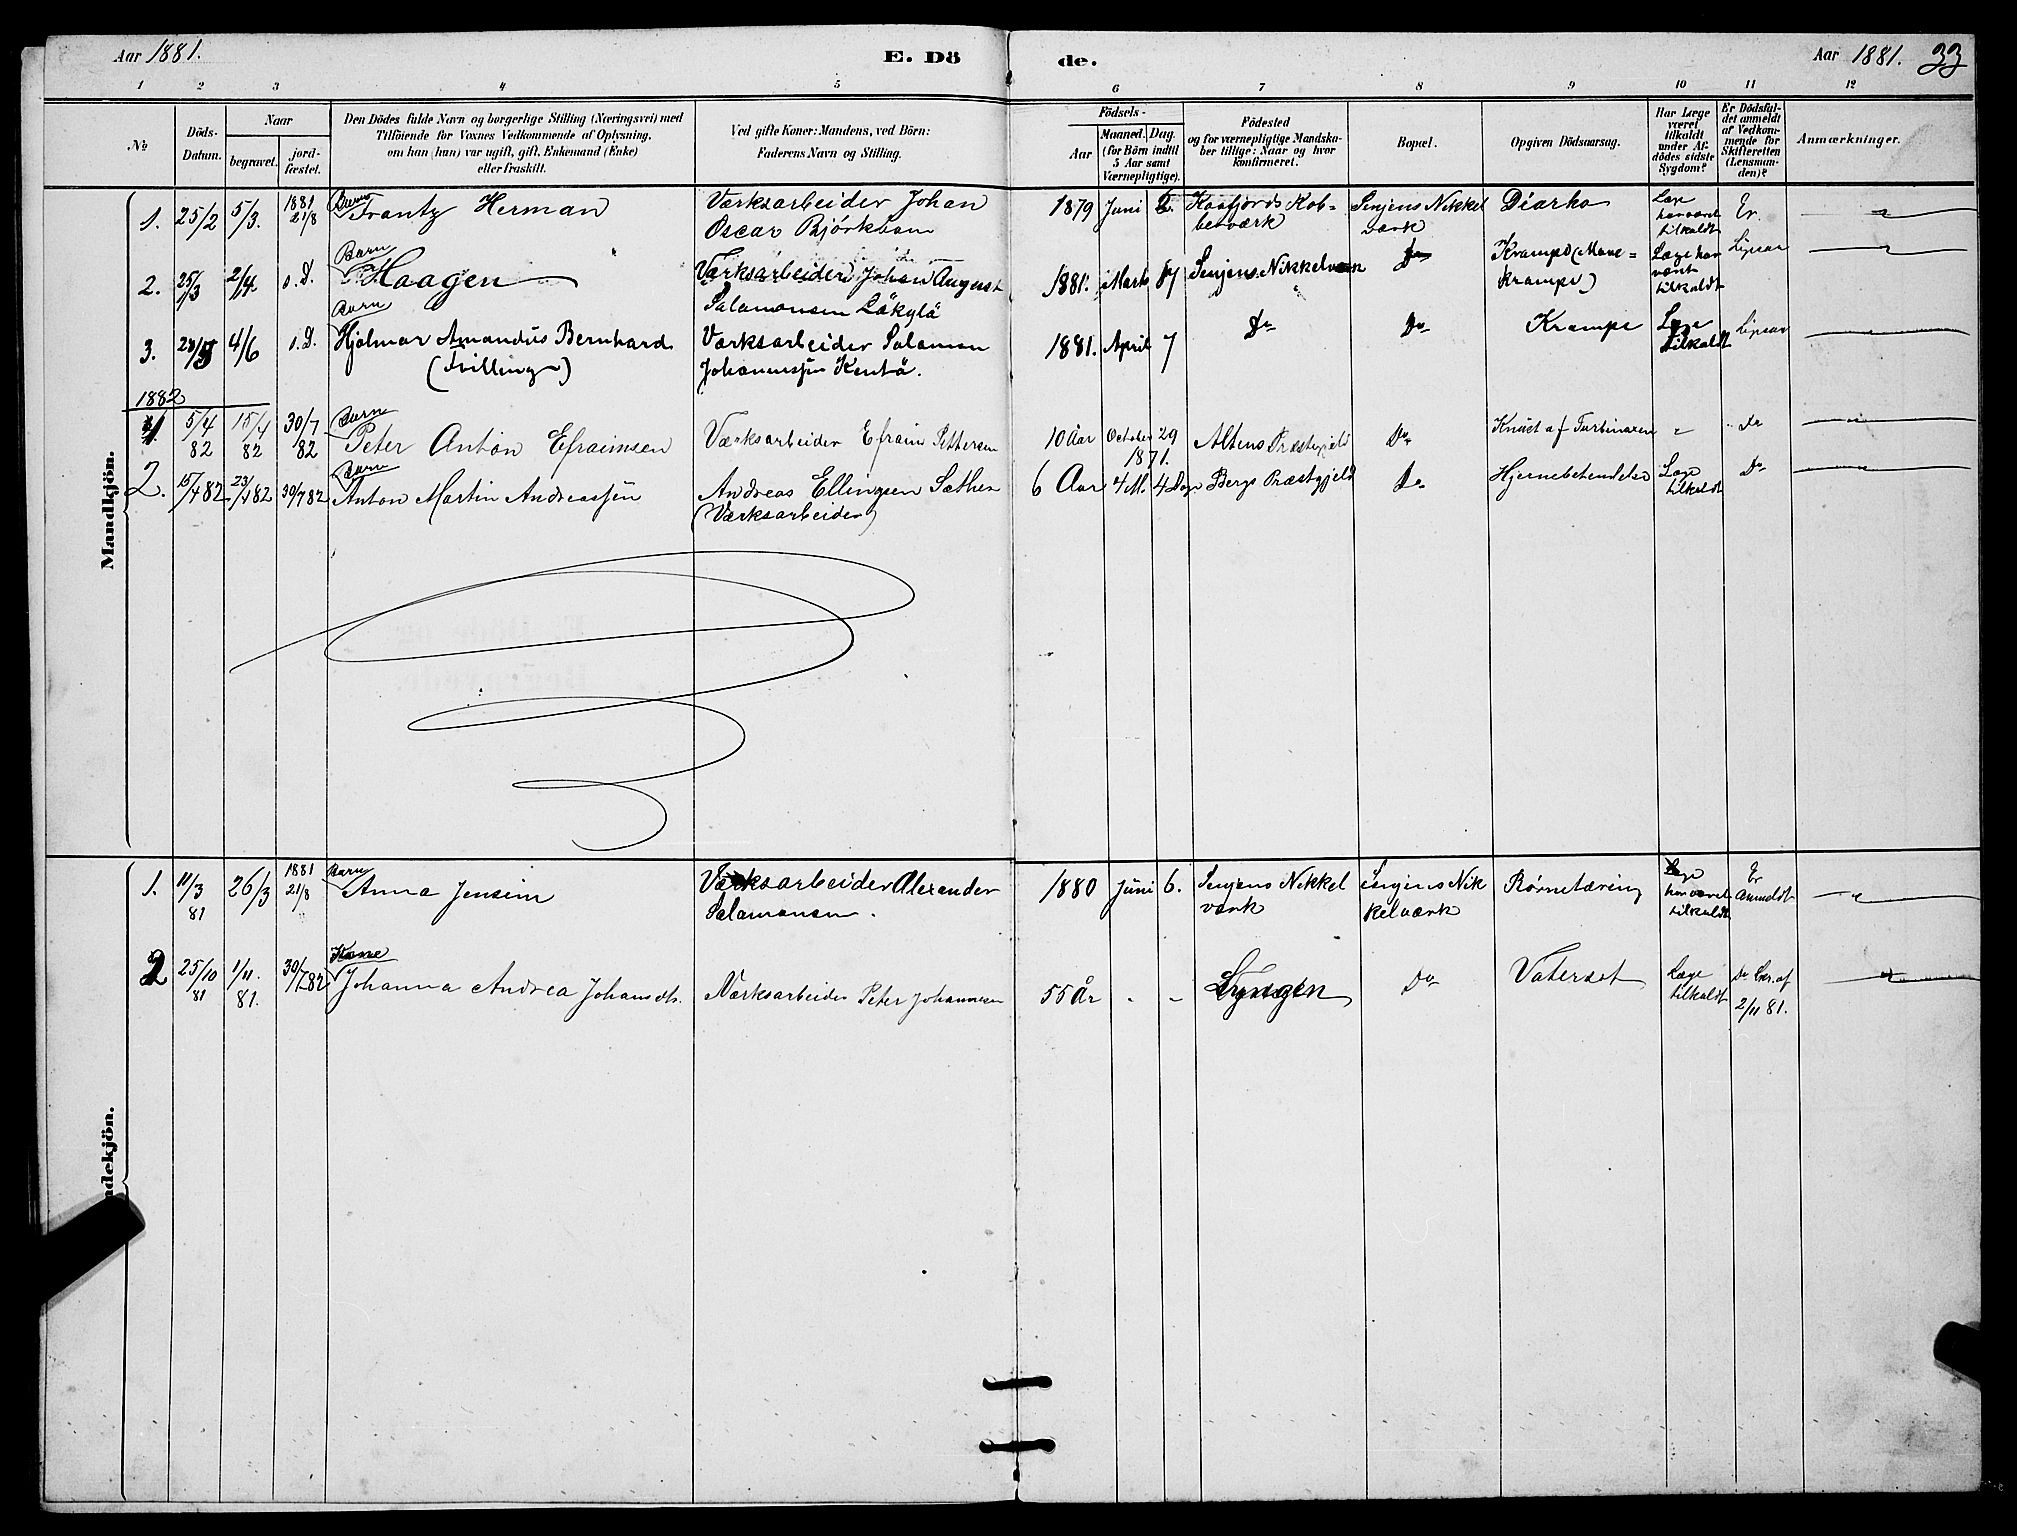 Aar 1881.
E. Dö
de.
Aar 1881. 33
1 2 3 4 5 6 7 8 9 10 11 12
No
Döds-
Datum.
Naar
begravet.
jord-
fæstet.
Den Dödes fulde Navn og borgerlige Stilling (Næringsvei) med
Tilföiende for Voxnes Vedkommende af Oplysning,
om han (hun) var ugift, gift, Enkemand (Enke)
eller fraskilt.
Ved gifte Koner: Mandens, ved Börn:
Faderens Navn og Stilling.
Födsels-
Aar
Maaned. Dag.
(for Börn indtil
5 Aar samt
Værnepligtige).
Födested
og for værnepligtige Mandska-
ber tillige: Naar og hvor
konfirmeret.
Bopæl.
Opgiven Dödsaarsag.
Har Læge
været
tilkaldt
under Af-
dödes sidste
Sygdom?
Er Dödsfal-
det anmeldt
af Vedkom-
mende for
Skifteretten
(Lensman-
den)?
Anmærkninger.
Mandkjön.
1. 25/2 5/3. 1881 21/8 Barn Frantz Herman
Værksarbeider Johan
Oscar Bjørkbom
1879 Juni 2. Kaafjords Kob-
berværk
Senjens Nikkel
værk
Diarho
Læge
har været
tilkaldt
Er
2. 25/3 2/4. s.D. Barn Haagen
Værksarbeider Johan August
Salamonsen Läkylä
1881. Marts 17 Senjens Nikkelværk Do
Krampe (Mave=
krampe)
Læge har
været
tilkaldt
Ligesaa
3. 29/5 4/6 s.D. Barn Hjalmar Amandus Bernhard
(Tvilling)
Værksarbeider Salamon
Johannessen Kentä.
1881. April 7 Do Do Krampe
Læge
tilkaldt
Ligesaa
1882
1. 5/4 82 15/4 82 30/7 82 Barn Peter Anton Efraimsen
Værksarbeider Efraim Pettersen
10 Aar October 29
1871.
Altens Præstegjeld Do Knust af Turbinaxen " Do
2. 15/4 82 23/4 82 30/7 82 Barn Anton Martin Andreassen
Andreas Ellingsen Sæther
(Værksarbeider)
6 Aar 4 M. 4 Dage Bergs Præstegjeld Do Hjernebetendelse
Læge
tilkaldt
Do
ndekjön.
1. 11/3 81 26/3 1881 21/8 Barn Anna Jensine
Værksarbeider Alexander
Salamonsen.
1880 Juni 6. Senjens Nikkel
værk
Senjens Nik
kelværk
Børnetæring
Læge
har været
tilkaldt
Er
Anmeldt
2 25/10 81 1/11. 81. 30/7 82 Kone Johanna Andrea Johansdtr.
Værksarbeider Peter Johannesen
55 År " " Lyngen Do Vatersot
Læge
tilkaldt
Do Skr. af
2/11 81.